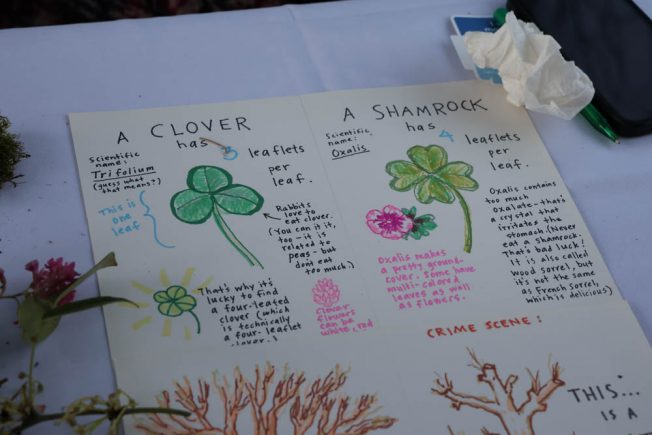 A CLOVER
has 3 leaflets
per
leaf.
Scientific
name:
Trifolium
(guess what
that means?)
This is
one
leaf
Rabbits
love to
eat clover.
(You can it it,
too - it is
related to
peas - but
don't eat
too much.)
That's why it's
lucky to find
a four-leafed
clover (which
is technically
a four-leaflet
clover.)
Clover
flowers
can be
white, red
A SHAMROCK
has 4 leaflets
per
leaf.
Scientific
name:
Oxalis
Oxalis contains
too much
oxalate - that's
a crystal that
irritates the
stomach. (Never
eat a shamrock.
That's bad luck!
It is also called
wood sorrel, but
it's not the same
as French Sorrel,
which is delicious)
Oxalis makes
a pretty ground-
cover. Some have
multi-colored
leaves as well
as flowers.
CRIME SCENE:
THIS...
IS A